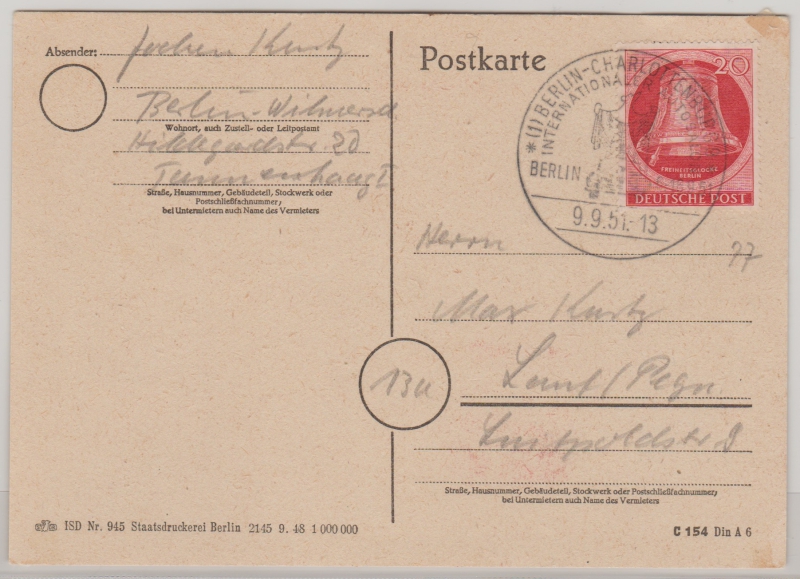 Absender: Jochen Kurtz
Berlin-Wilmersd
Wohnort, auch Zustell- oder Leitpostamt
Hildegardstr. 20
Straße, Hausnummer, Gebäudeteil, Stockwerk oder
Postschließfachnummer;
bei Untermietern auch Name des Vermieters
Postkarte
* (1) BERLIN-CHARLOTTENBURG
INTERNATIONALE
BERLIN
9.9.51.-13
20
FREIHEITSGLOCKE
BERLIN
DEUTSCHE POST
77
Herrn
Max Kurtz
13a
Lauf/Pegn
Luitpoldstr
Straße, Hausnummer, Gebäudeteil, Stockwerk oder Postschließfachnummer;
bei Untermietern auch Name des Vermieters
ISD Nr. 945 Staatsdruckerei Berlin 2145 9. 48 1 000 000
C 154 Din A 6